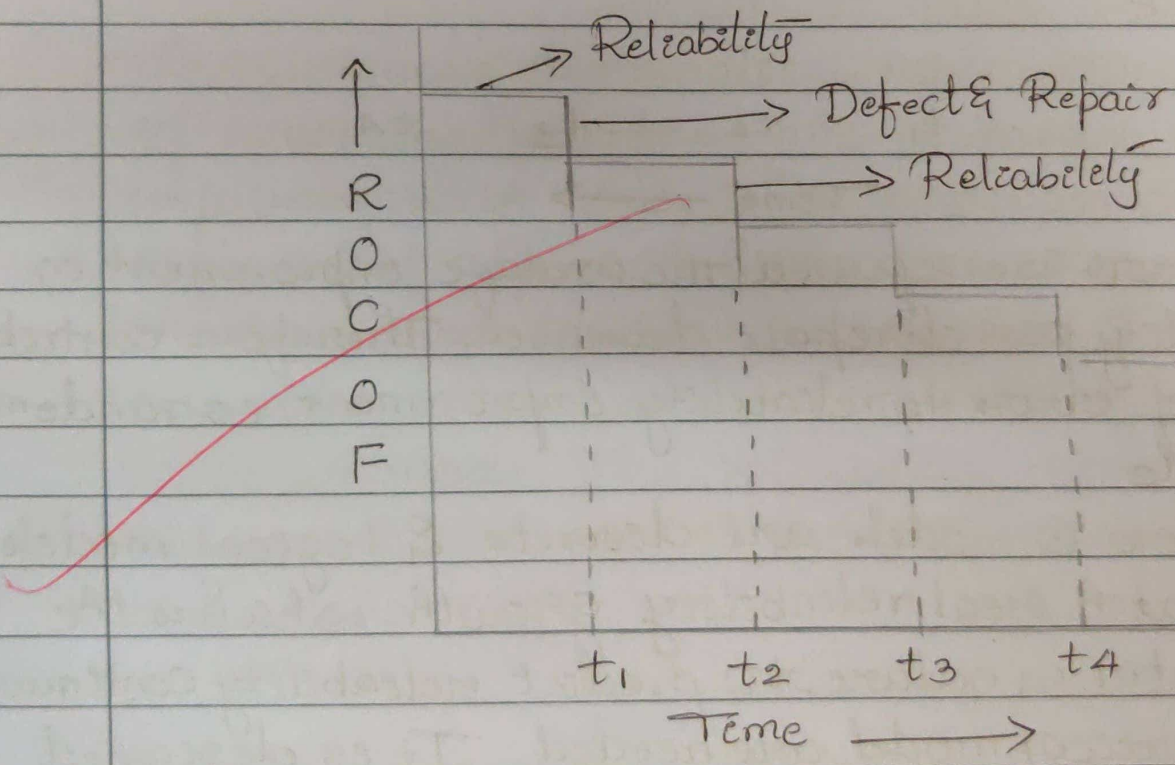 Reliability
Defect & Repair
Reliability
R
O
C
O
F
t1 t2 t3 t4
Time